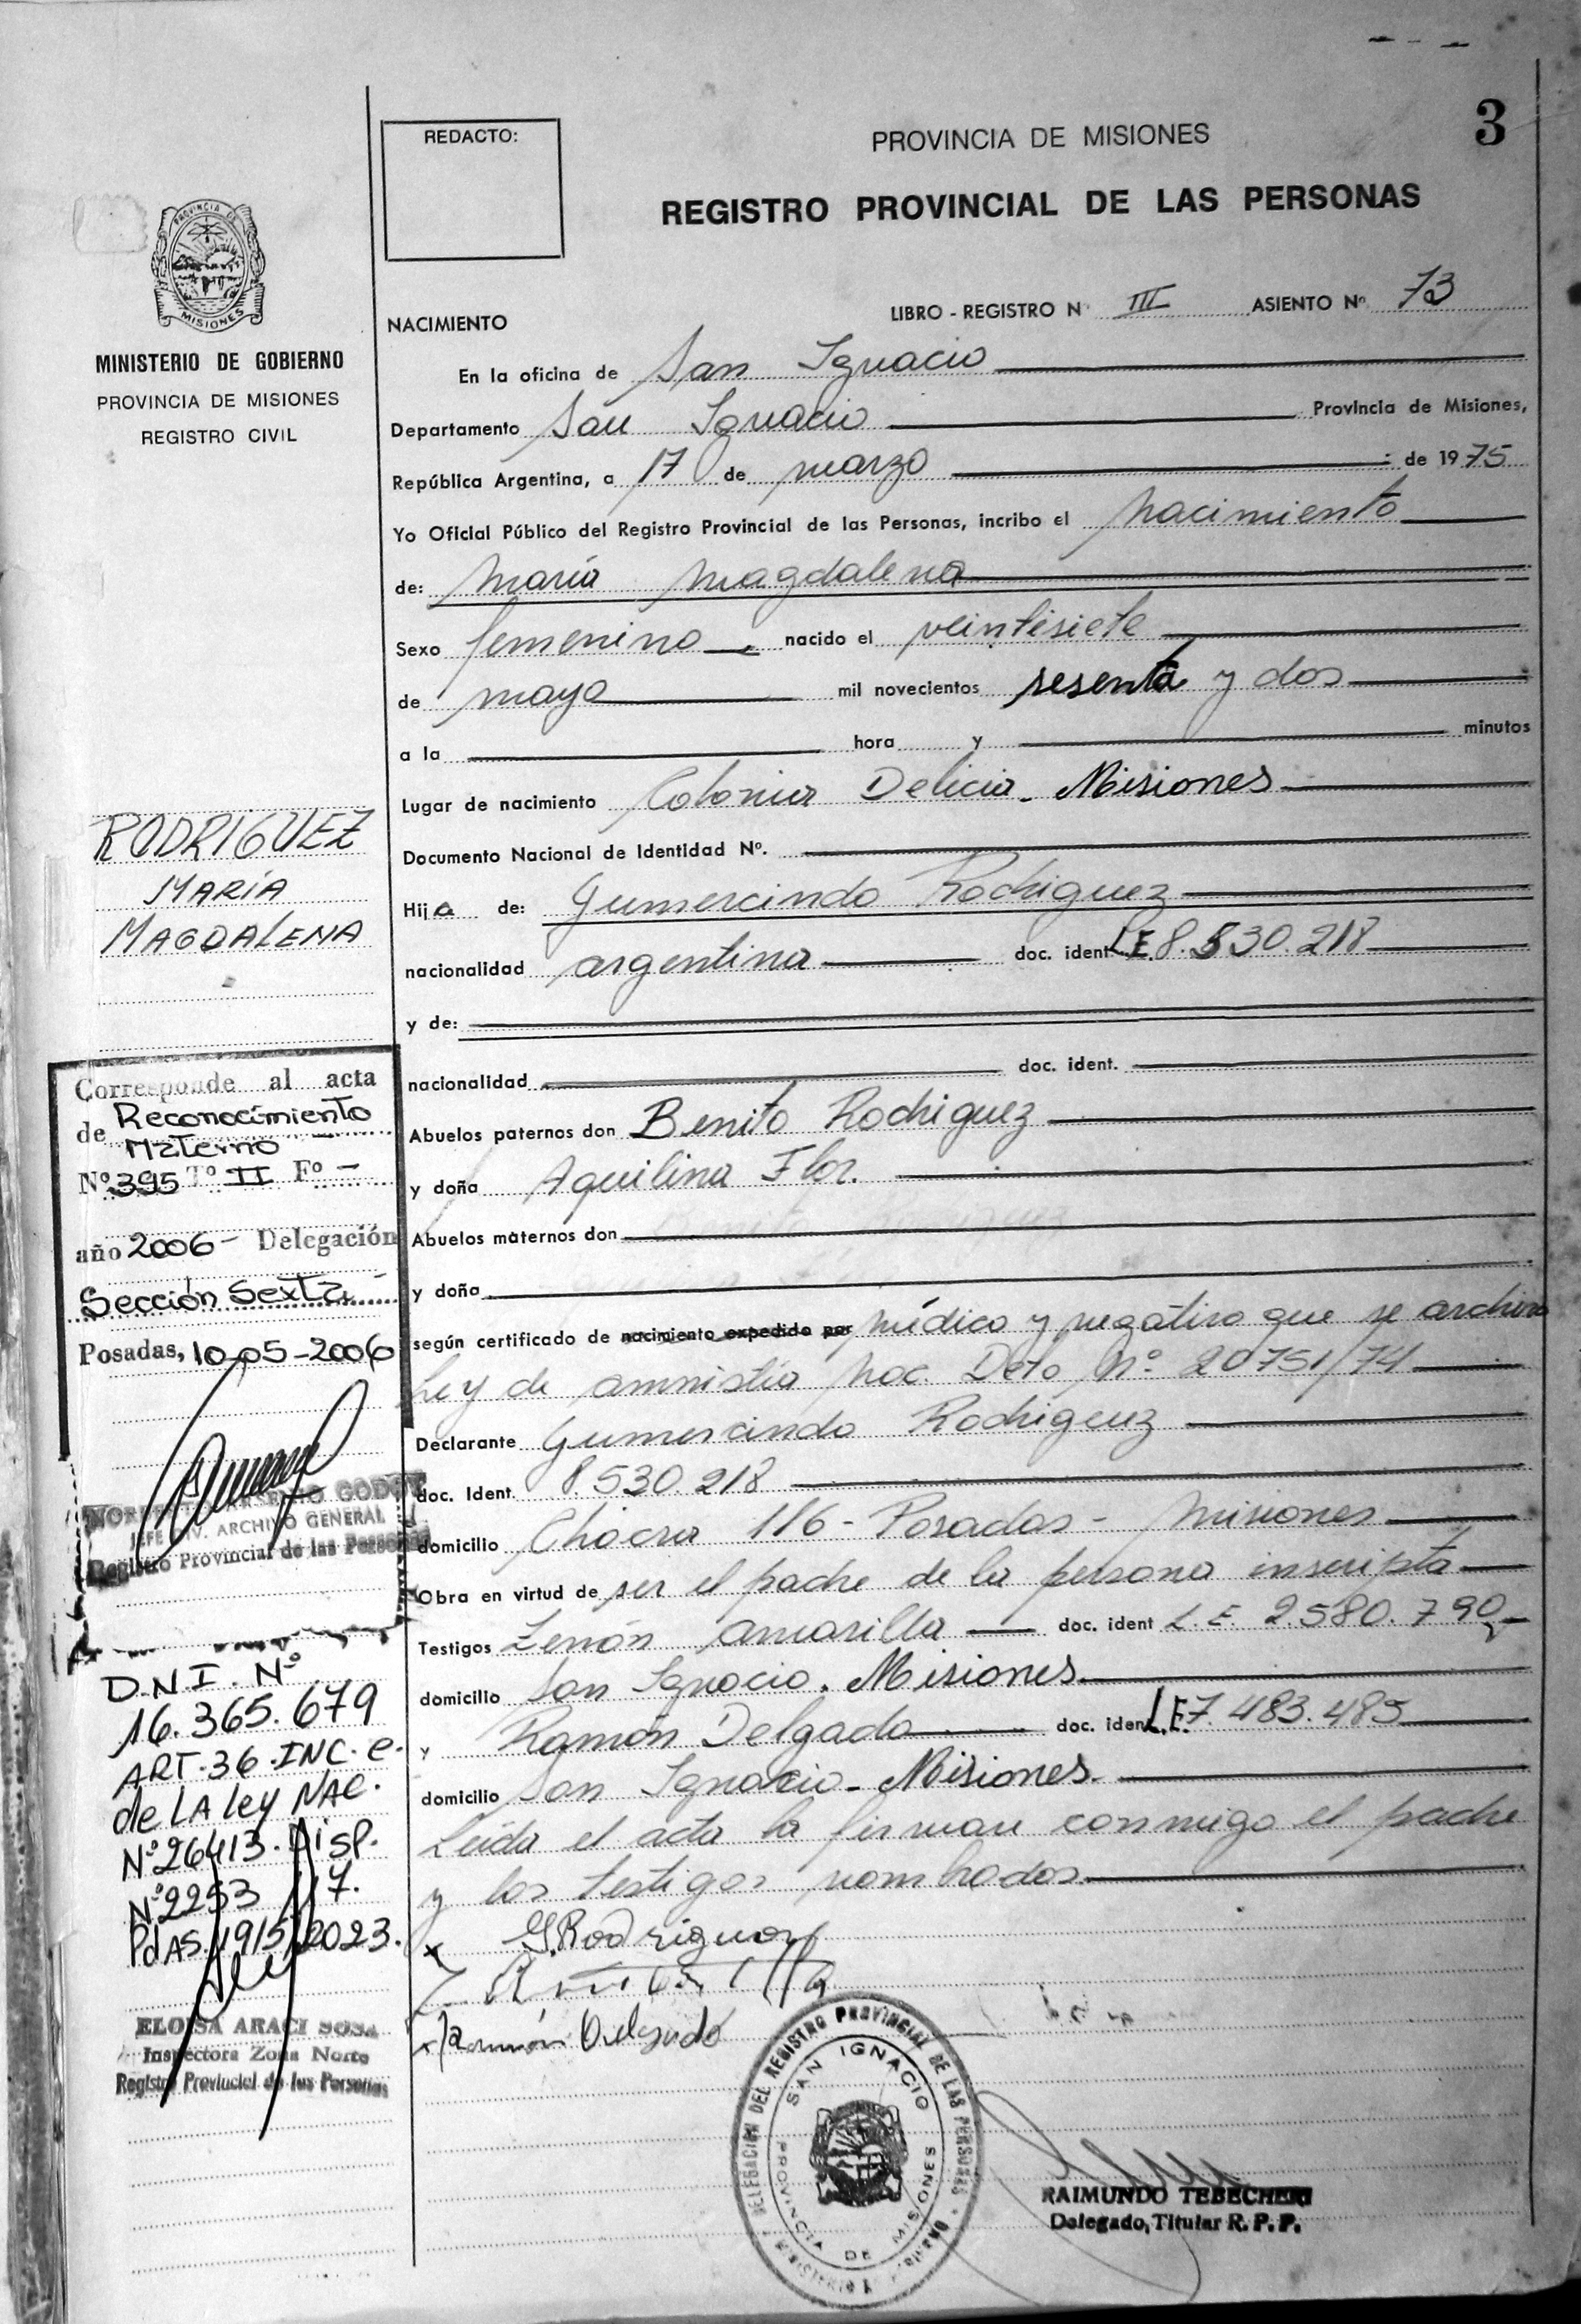 3
REDACTO:
PROVINCIA DE MISIONES
REGISTRO PROVINCIAL DE LAS PERSONAS
PROVINCIA DE
MISIONES
MINISTERIO DE GOBIERNO
PROVINCIA DE MISIONES
REGISTRO CIVIL
LIBRO - REGISTRO N° III ASIENTO N° 73
NACIMIENTO
En la oficina de San Ignacio
Departamento San Ignacio Provincia de Misiones,
República Argentina, a 17 de marzo de 1975
Yo Oficial Público del Registro Provincial de las Personas, incribo el nacimiento
de: María Magdalena
Sexo femenino nacido el veintisiete
de mayo mil novecientos sesenta y dos
a la hora y minutos
Lugar de nacimiento Colonia Delicia - Misiones
Documento Nacional de Identidad N°.
Hija de: Gumercindo Rodriguez
nacionalidad argentina doc. ident. L.E. 8.530.218
y de:
nacionalidad doc. ident.
Abuelos paternos don Benito Rodriguez
y doña Aquilina Flor.
Abuelos maternos don
y doña
según certificado de nacimiento expedido por médico y negativo que se archiva
Ley de amnistía Nac. Deto N° 20751/74
Declarante Gumercindo Rodrigeuz
doc. Ident. 8.530.218
domicilio Chacra 116 - Posadas - Misiones
Obra en virtud de ser el padre de la persona inscripta
Testigos Zenón Amarilla doc. ident L.E. 2.580.790
domicilio San Ignacio. Misiones
y Ramón Delgado doc. ident L.E. 7.483.485
domicilio San Ignacio - Misiones
Leída el acta la firman conmigo el padre
y los testigos nombrados
x G. Rodriguez
Z. Amarilla
x Ramón Delgado
RODRIGUEZ
MARÍA
MAGDALENA
Corresponde al acta
de Reconocimiento
Materno
N° 395 T° II F° -
año 2006 - Delegación
Sección Sexta
Posadas, 10-05-2006
ARSENIO GODOY
JEFE DIV. ARCHIVO GENERAL
Registro Provincial de las Personas
D.N.I. N°
16.365.679
ART. 36 - INC. e.
de LA Ley NAC.
N° 26413. Disp.
N° 2253 / 17.
PdAS. 19/5/2023.
ELOISA ARACI SOSA
Inspectora Zona Norte
Registro Provincial de las Personas
DELEGACION DEL REGISTRO PROVINCIAL DE LAS PERSONAS
SAN IGNACIO
PROVINCIA DE MISIONES
RAIMUNDO TEBECHERI
Delegado, Titular R. P. P.